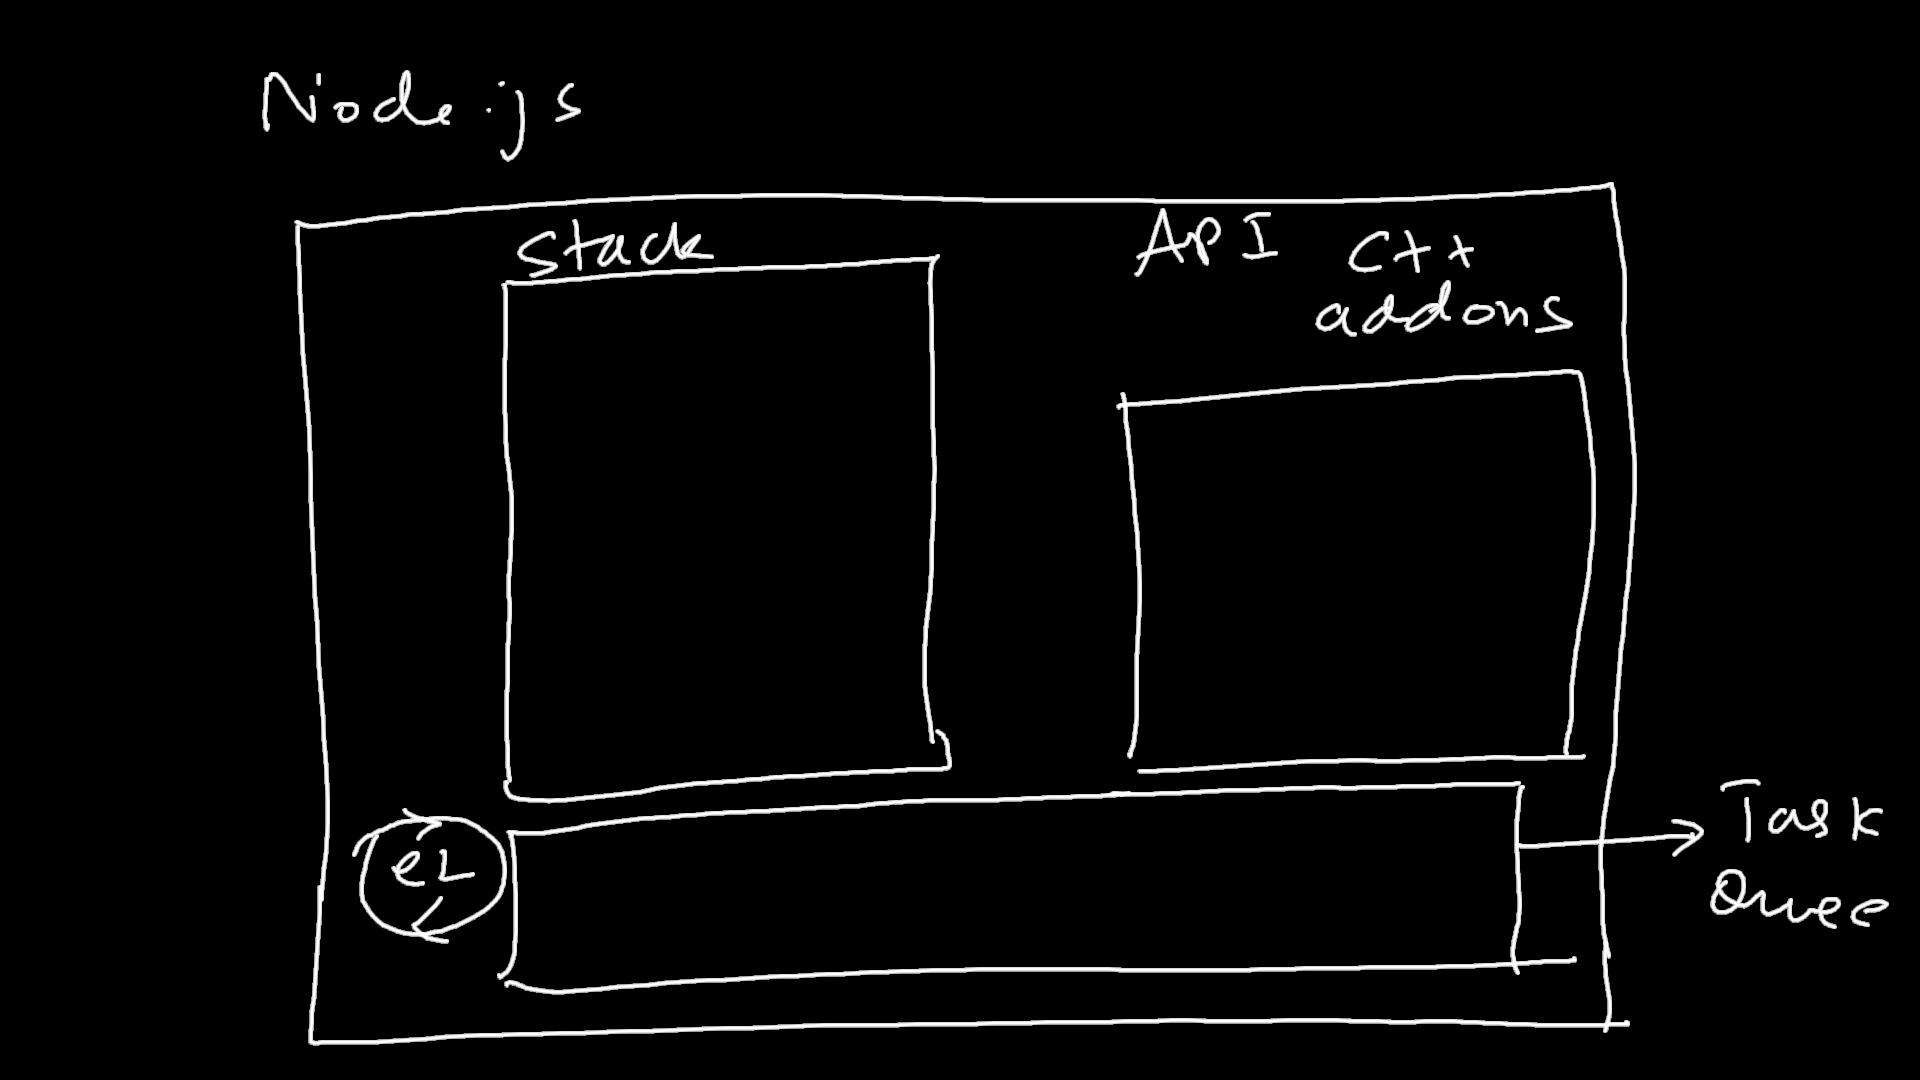 Node.js
Stack
API C++
addons
eL
Task
Quee